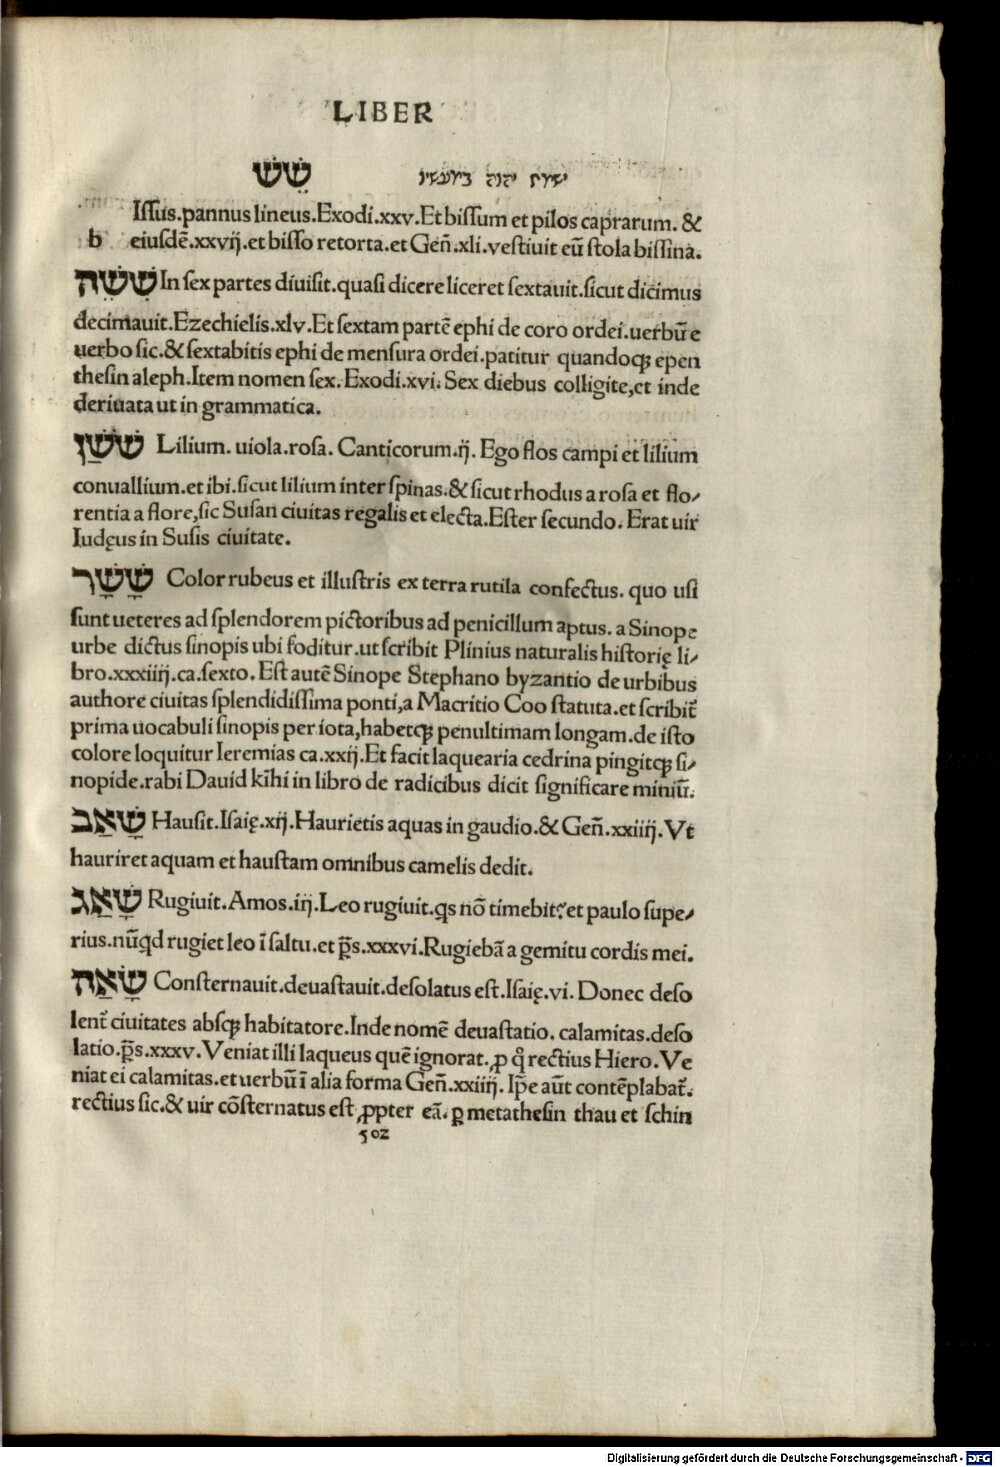 LIBER
שֵׁשׁ
Issus.pannus lineus.Exodi.xxv.Et bissum et pilos caprarum. &
b eiusdē.xxvij.et bisso retorta.et Geñ.xli.vestiuit eū stola bissina.
שִׁשָּׁה In sex partes diuisit.quasi dicere liceret sextauit.sicut dicimus
decimauit.Ezechielis.xlv.Et sextam partē ephi de coro ordei.uerbū e
uerbo sic.& sextabitis ephi de mensura ordei.patitur quandoqꝫ epen
thesin aleph.Item nomen sex.Exodi.xvi.Sex diebus colligite,et inde
deriuata ut in grammatica.
שׁשַׁן Lilium.uiola.rosa. Canticorum.ij. Ego flos campi et lilium
conuallium.et ibi.sicut lilium inter spinas.& sicut rhodus a rosa et flo⸗
rentia a flore,sic Susan ciuitas regalis et electa.Ester secundo. Erat uir
Iudęus in Susis ciuitate.
שָׁשָׁר Color rubeus et illustris ex terra rutila confectus. quo usi
sunt ueteres ad splendorem pictoribus ad penicillum aptus. a Sinope
urbe dictus sinopis ubi foditur.ut scribit Plinius naturalis historię li⸗
bro.xxxiiij.ca.sexto. Est autē Sinope Stephano byzantio de urbibus
authore ciuitas splendidissima ponti,a Macritio Coo statuta.et scribit᷑
prima uocabuli sinopis per iota,habetqꝫ penultimam longam.de isto
colore loquitur Ieremias ca.xxij.Et facit laquearia cedrina pingitqꝫ si⸗
nopide.rabi Dauid kīhi in libro de radicibus dicit significare miniū.
שָׁאַב Hausit.Isaię.xij.Haurietis aquas in gaudio.& Geñ.xxiiij.Vt
hauriret aquam et haustam omnibus camelis dedit.
שָׁאַג Rugiuit.Amos.iij.Leo rugiuit.qs nō timebit?et paulo supe⸗
rius.nūqd rugiet leo ī saltu.et p̄s.xxxvi.Rugiebā a gemitu cordis mei.
שָׁאַה Consternauit.deuastauit.desolatus est.Isaię.vi. Donec deso
lent᷑ ciuitates absqꝫ habitatore.Inde nomē deuastatio. calamitas.deso
latio.p̄s.xxxv.Veniat illi laqueus quē ignorat.ꝓ qͦ rectius Hiero.Ve
niat ei calamitas.et uerbū ī alia forma Geñ.xxiiij. Ip̄e aūt contēplabat᷑.
rectius sic.& uir cōsternatus est ꝓpter eā.ꝑ metathesin thau et schin
502
Digitalisierung gefördert durch die Deutsche Forschungsgemeinschaft - DFG